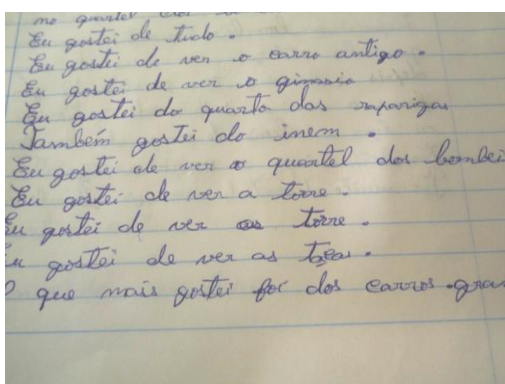 no quartel
Eu gostei de tudo.
Eu gostei de ver o carro antigo.
Eu gostei de ver o ginasio
Eu gostei do quarto das raparigas
Também gostei do inem.
Eu gostei de ver o quartel dos bombei
Eu gostei de ver a torre.
Eu gostei de ver as torre.
Eu gostei de ver as taças.
O que mais gostei foi dos carros gran